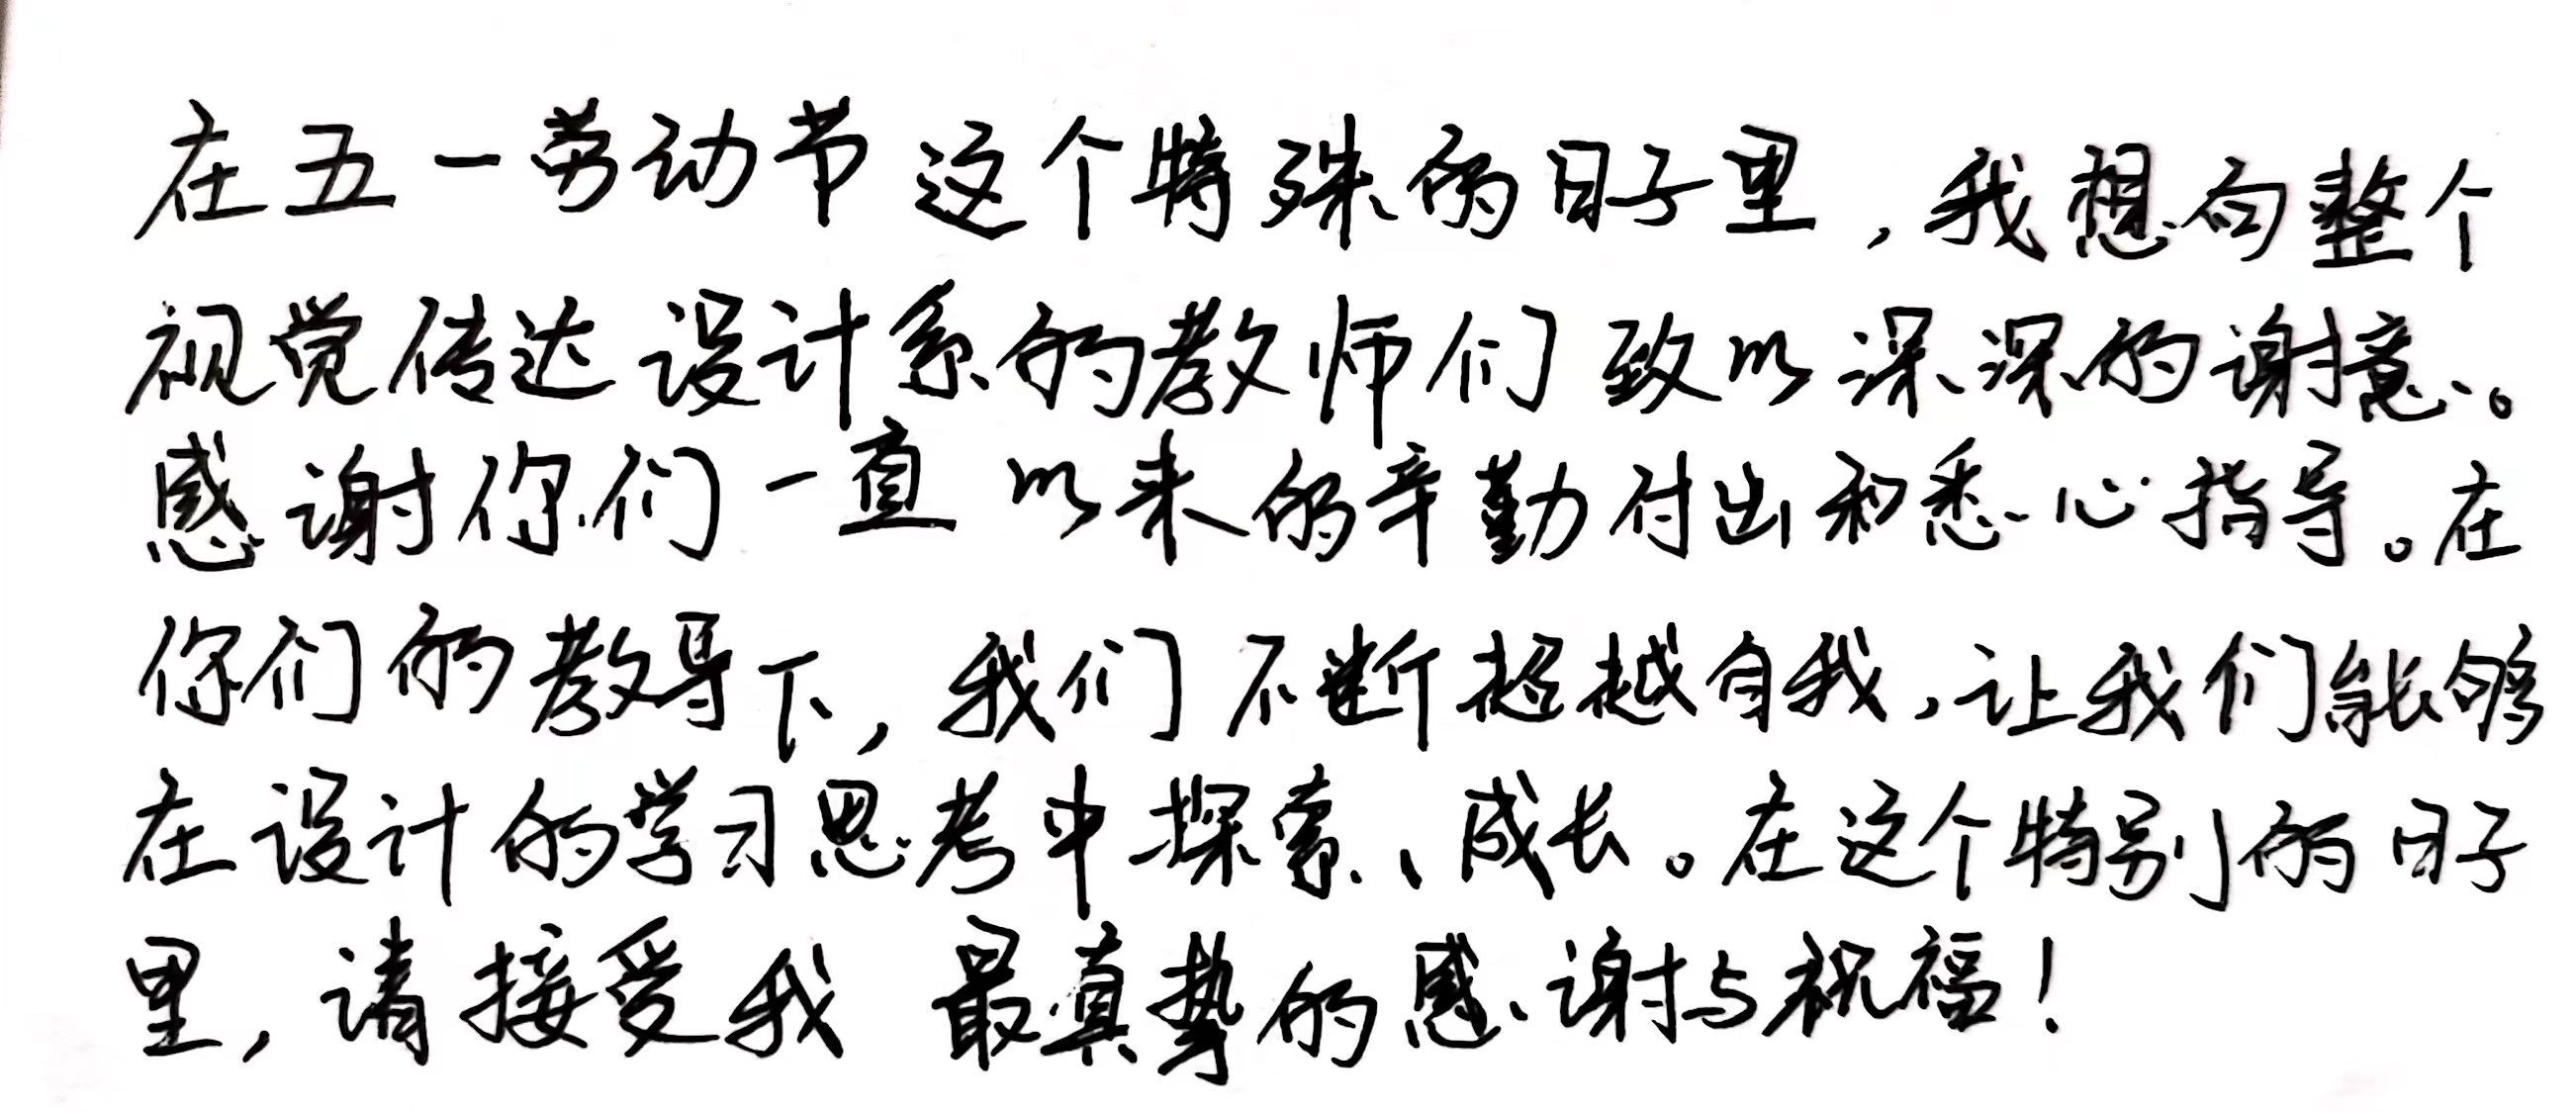 在五一劳动节这个特殊的日子里，我想向整个
视觉传达设计系的教师们致以深深的谢意。
感谢你们一直以来的辛勤付出和悉心指导。在
你们的教导下，我们不断超越自我，让我们能够
在设计的学习思考中探索、成长。在这个特别的日子
里，请接受我最真挚的感谢与祝福！